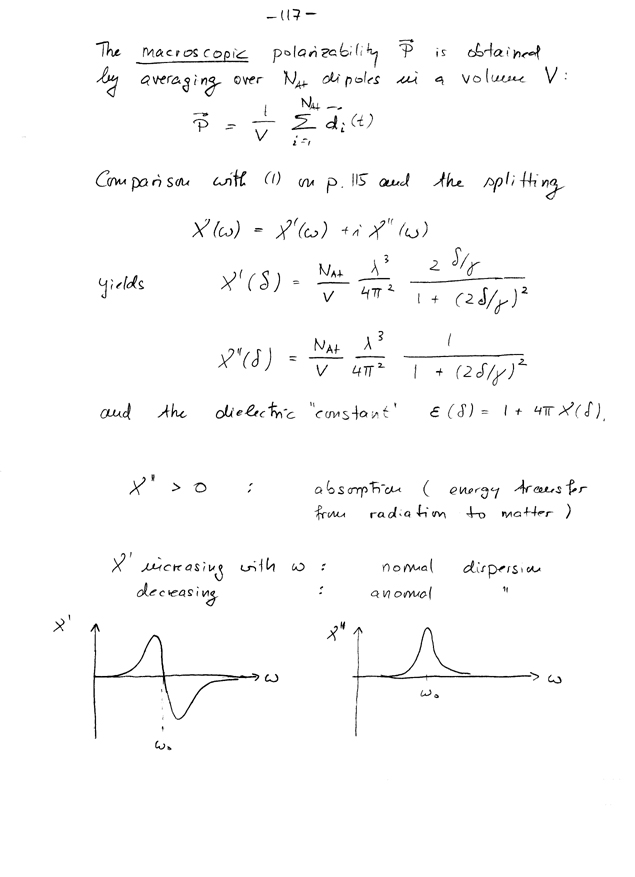 -117-
The macroscopic polarizability P⃗ is obtained
by averaging over N_At dipoles in a volume V:
P⃗ = 1/V Σ_{i=1}^{N_At} d⃗_i(t)
Comparison with (1) on p. 115 and the splitting
χ(ω) = χ'(ω) + i χ''(ω)
yields χ'(δ) = N_At/V λ³/4π² 2 δ/γ / (1 + (2δ/γ)²)
χ''(δ) = N_At/V λ³/4π² 1 / (1 + (2δ/γ)²)
and the dielectric "constant" ε(δ) = 1 + 4π χ(δ).
χ'' > 0 : absorption ( energy transfer
from radiation to matter )
χ' increasing with ω : normal dispersion
decreasing : anomal "
χ' ω ω₀
χ'' ω ω₀